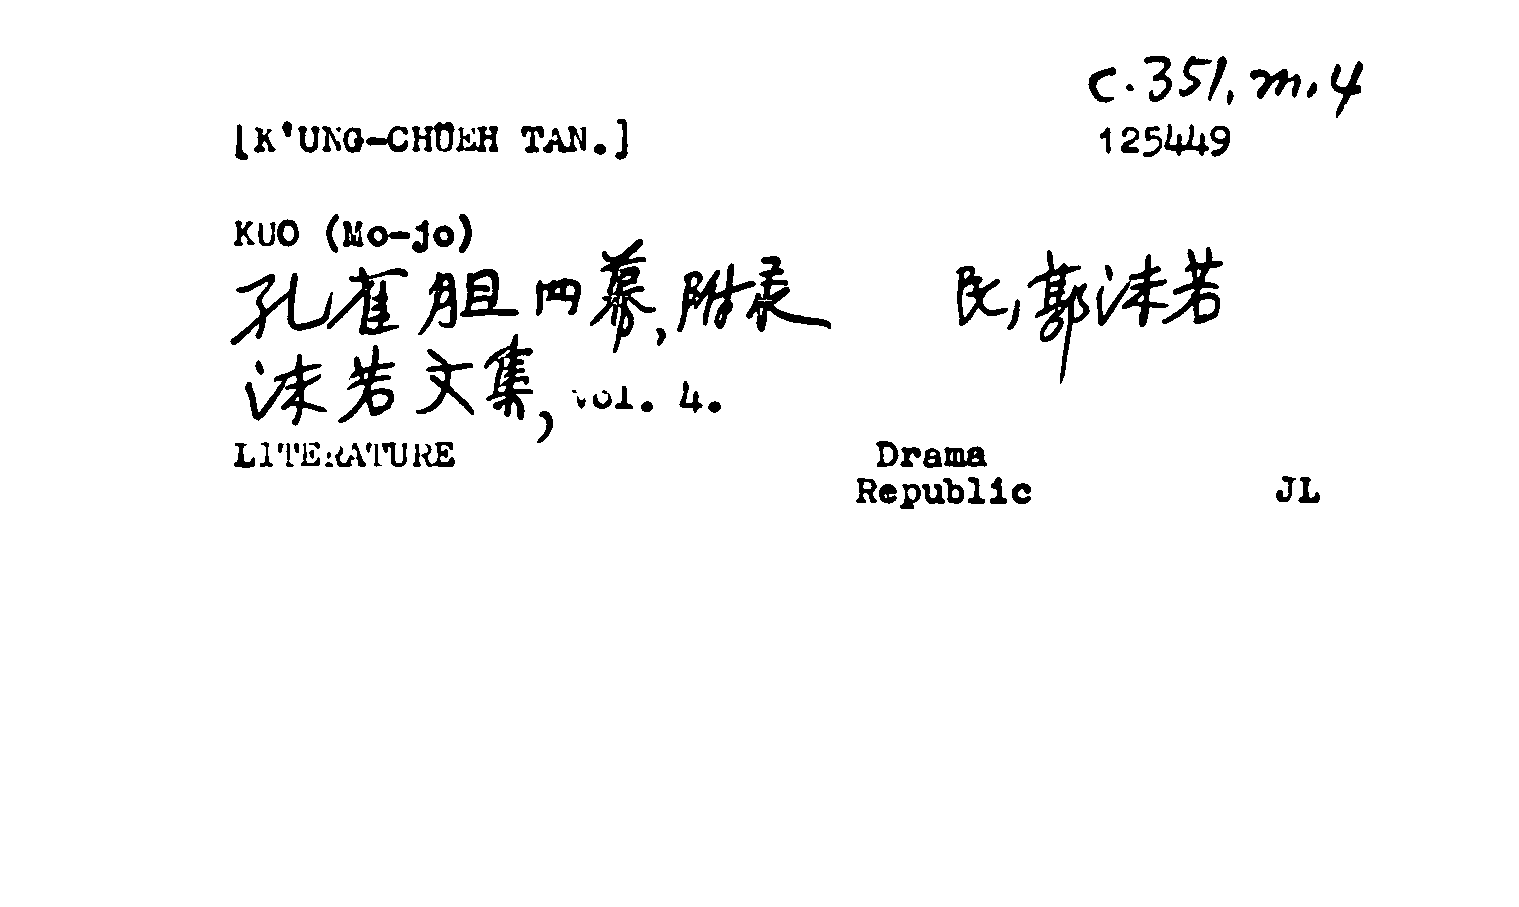 c.351.m.4
[K'UNG-CHÜEH TAN.]
125449
KUO (Mo-jo)
孔雀胆四幕,附录 民,郭沫若
沫若文集, vol. 4.
LITERATURE Drama
Republic JL